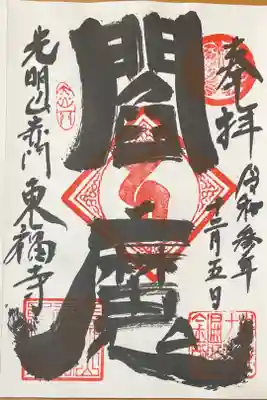 奉拝
令和参年
十二月五日
閻魔
光明山赤門
東福寺